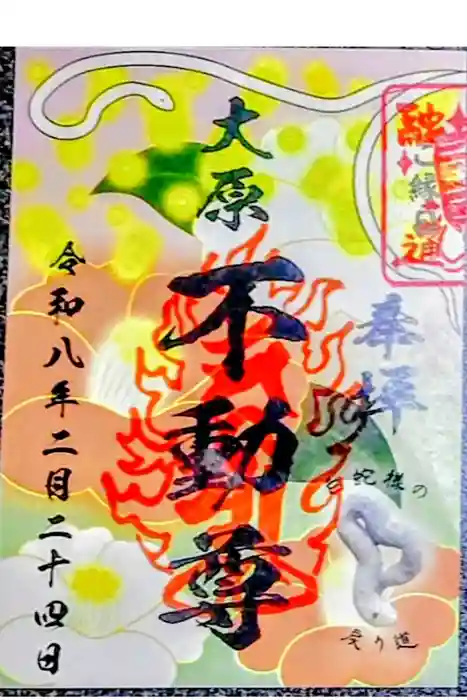 奉拝
大原
不動尊
令和八年二月二十四日
融
ご縁日
通
白蛇様の
受り道